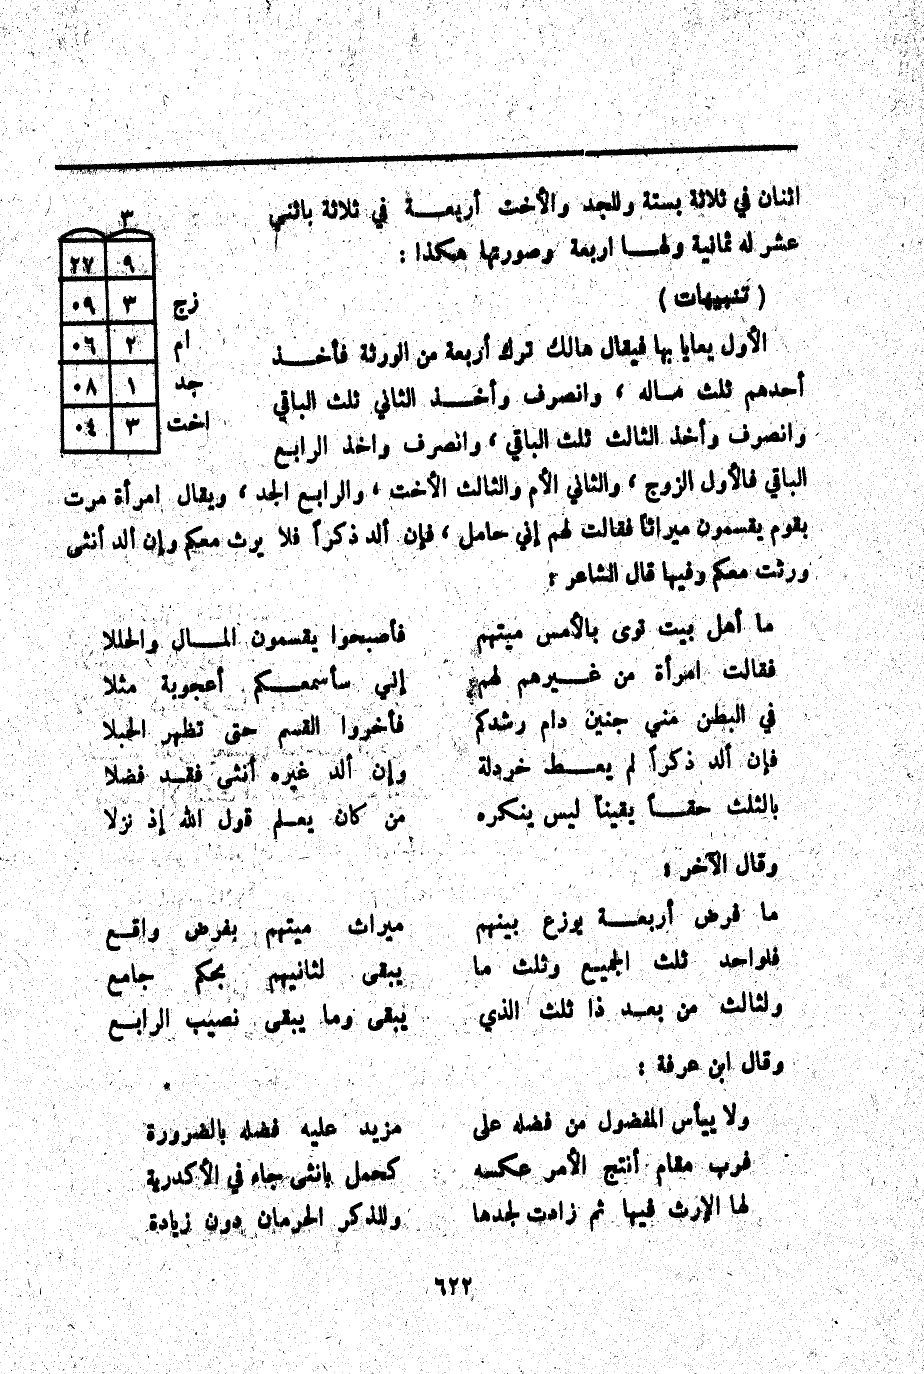 اثنان في ثلاثة بستة وللجد والأخت أربعـــة في ثلاثة باثني
عشر له ثمانية ولهـــا اربعة وصورتها هكذا :
٣
٩ ٢٧
زج ٣ ٠٩
ام ٢ ٠٦
جد ١ ٠٨
اخت ٣ ٠٤
( تنبيهات )
الأول يعايا بها فيقال هالك ترك أربعة من الورثة فأخـــذ
أحدهم ثلث مـاله ، وانصرف وأخـــذ الثاني ثلث الباقي
وانصرف وأخذ الثالث ثلث الباقي ، وانصرف واخذ الرابع
الباقي فالأول الزوج ، والثاني الأم والثالث الأخت ، والرابع الجد ، ويقال امرأة مرت
بقوم يقسمون ميراثاً فقالت لهم إني حامل ، فإن ألد ذكراً فلا يرث معكم وإن ألد أنثى
ورثت معكم وفيها قال الشاعر :
ما أهل بيت توى بالأمس ميتهم فأصبحوا يقسمون المـــال والحللا
فقالت امرأة من غـــيرهم لهم إني سأسمعـــكم أعجوبة مثلا
في البطن مني جنين دام رشدكم فأخروا القسم حتى تظهر الحبلا
فإن ألد ذكراً لم يعـــط خردلة وإن ألد غيره أنثى فقـد فضلا
بالثلث حقـــاً يقيناً ليس ينكره من كان يعـلم قول الله إذ نزلا
وقال الآخر :
ما فرض أربعـــة يوزع بينهم ميراث ميتهم بفرض واقـع
فلواحد ثلث الجميـع وثلث ما يبقى لثانيهم بحكم جامع
ولثالث من بعـد ذا ثلث الذي يبقى وما يبقى نصيب الرابـع
وقال ابن عرفة :
ولا ييأس المفضول من فضله على مزيد عليه فضله بالضرورة
فرب مقام أنتج الأمر عكسه كحمل بانثى جاء في الأكدرية
لها الإرث فيها ثم زادت لجدها وللذكر الحرمان دون زيادة
٦٢٢